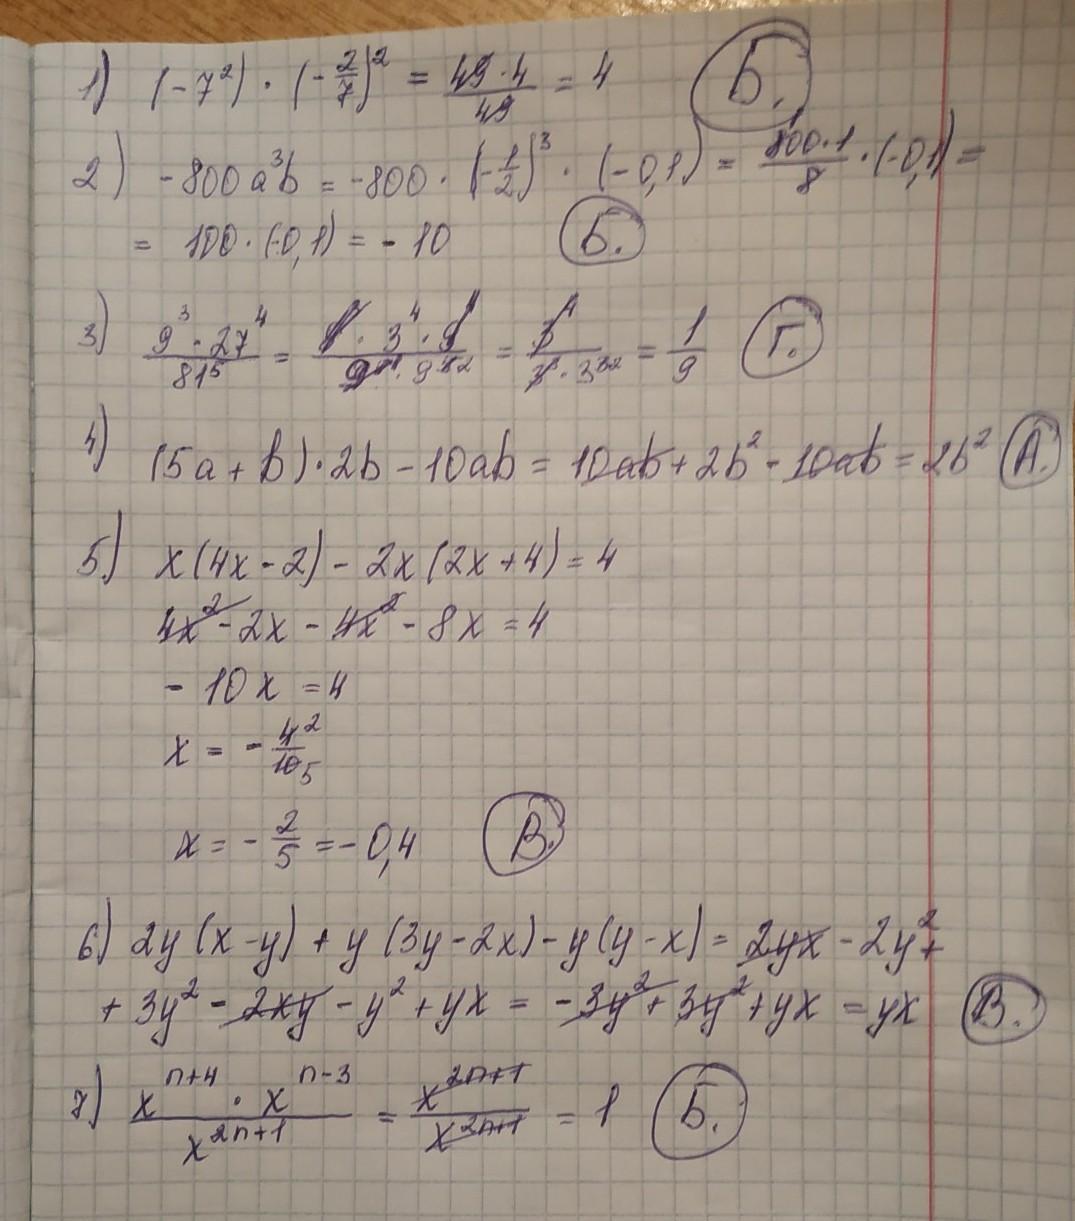 1) (-7²) · (-2/7)² = 49·4/49 = 4 Б.
2) -800a³b = -800 · (-1/2)³ · (-0,1) = 800·1/8 · (-0,1) =
= 100 · (-0,1) = -10 Б.
3) 9³ · 27⁴ / 81⁵ = = = 1/9 Г.
4) (5a + b) · 2b - 10ab = 10ab + 2b² - 10ab = 2b² А.
5) x(4x - 2) - 2x(2x + 4) = 4
4x² - 2x - 4x² - 8x = 4
- 10x = 4
x = - 4²/10₅
x = - 2/5 = -0,4 В.
6) 2y(x-y) + y(3y-2x) - y(y-x) = 2yx - 2y² +
+ 3y² - 2xy - y² + yx = -3y² + 3y² + yx = yx В.
7) xⁿ⁺⁴ · xⁿ⁻³ / x²ⁿ⁺¹ = x²ⁿ⁺¹ / x²ⁿ⁺¹ = 1 Б.